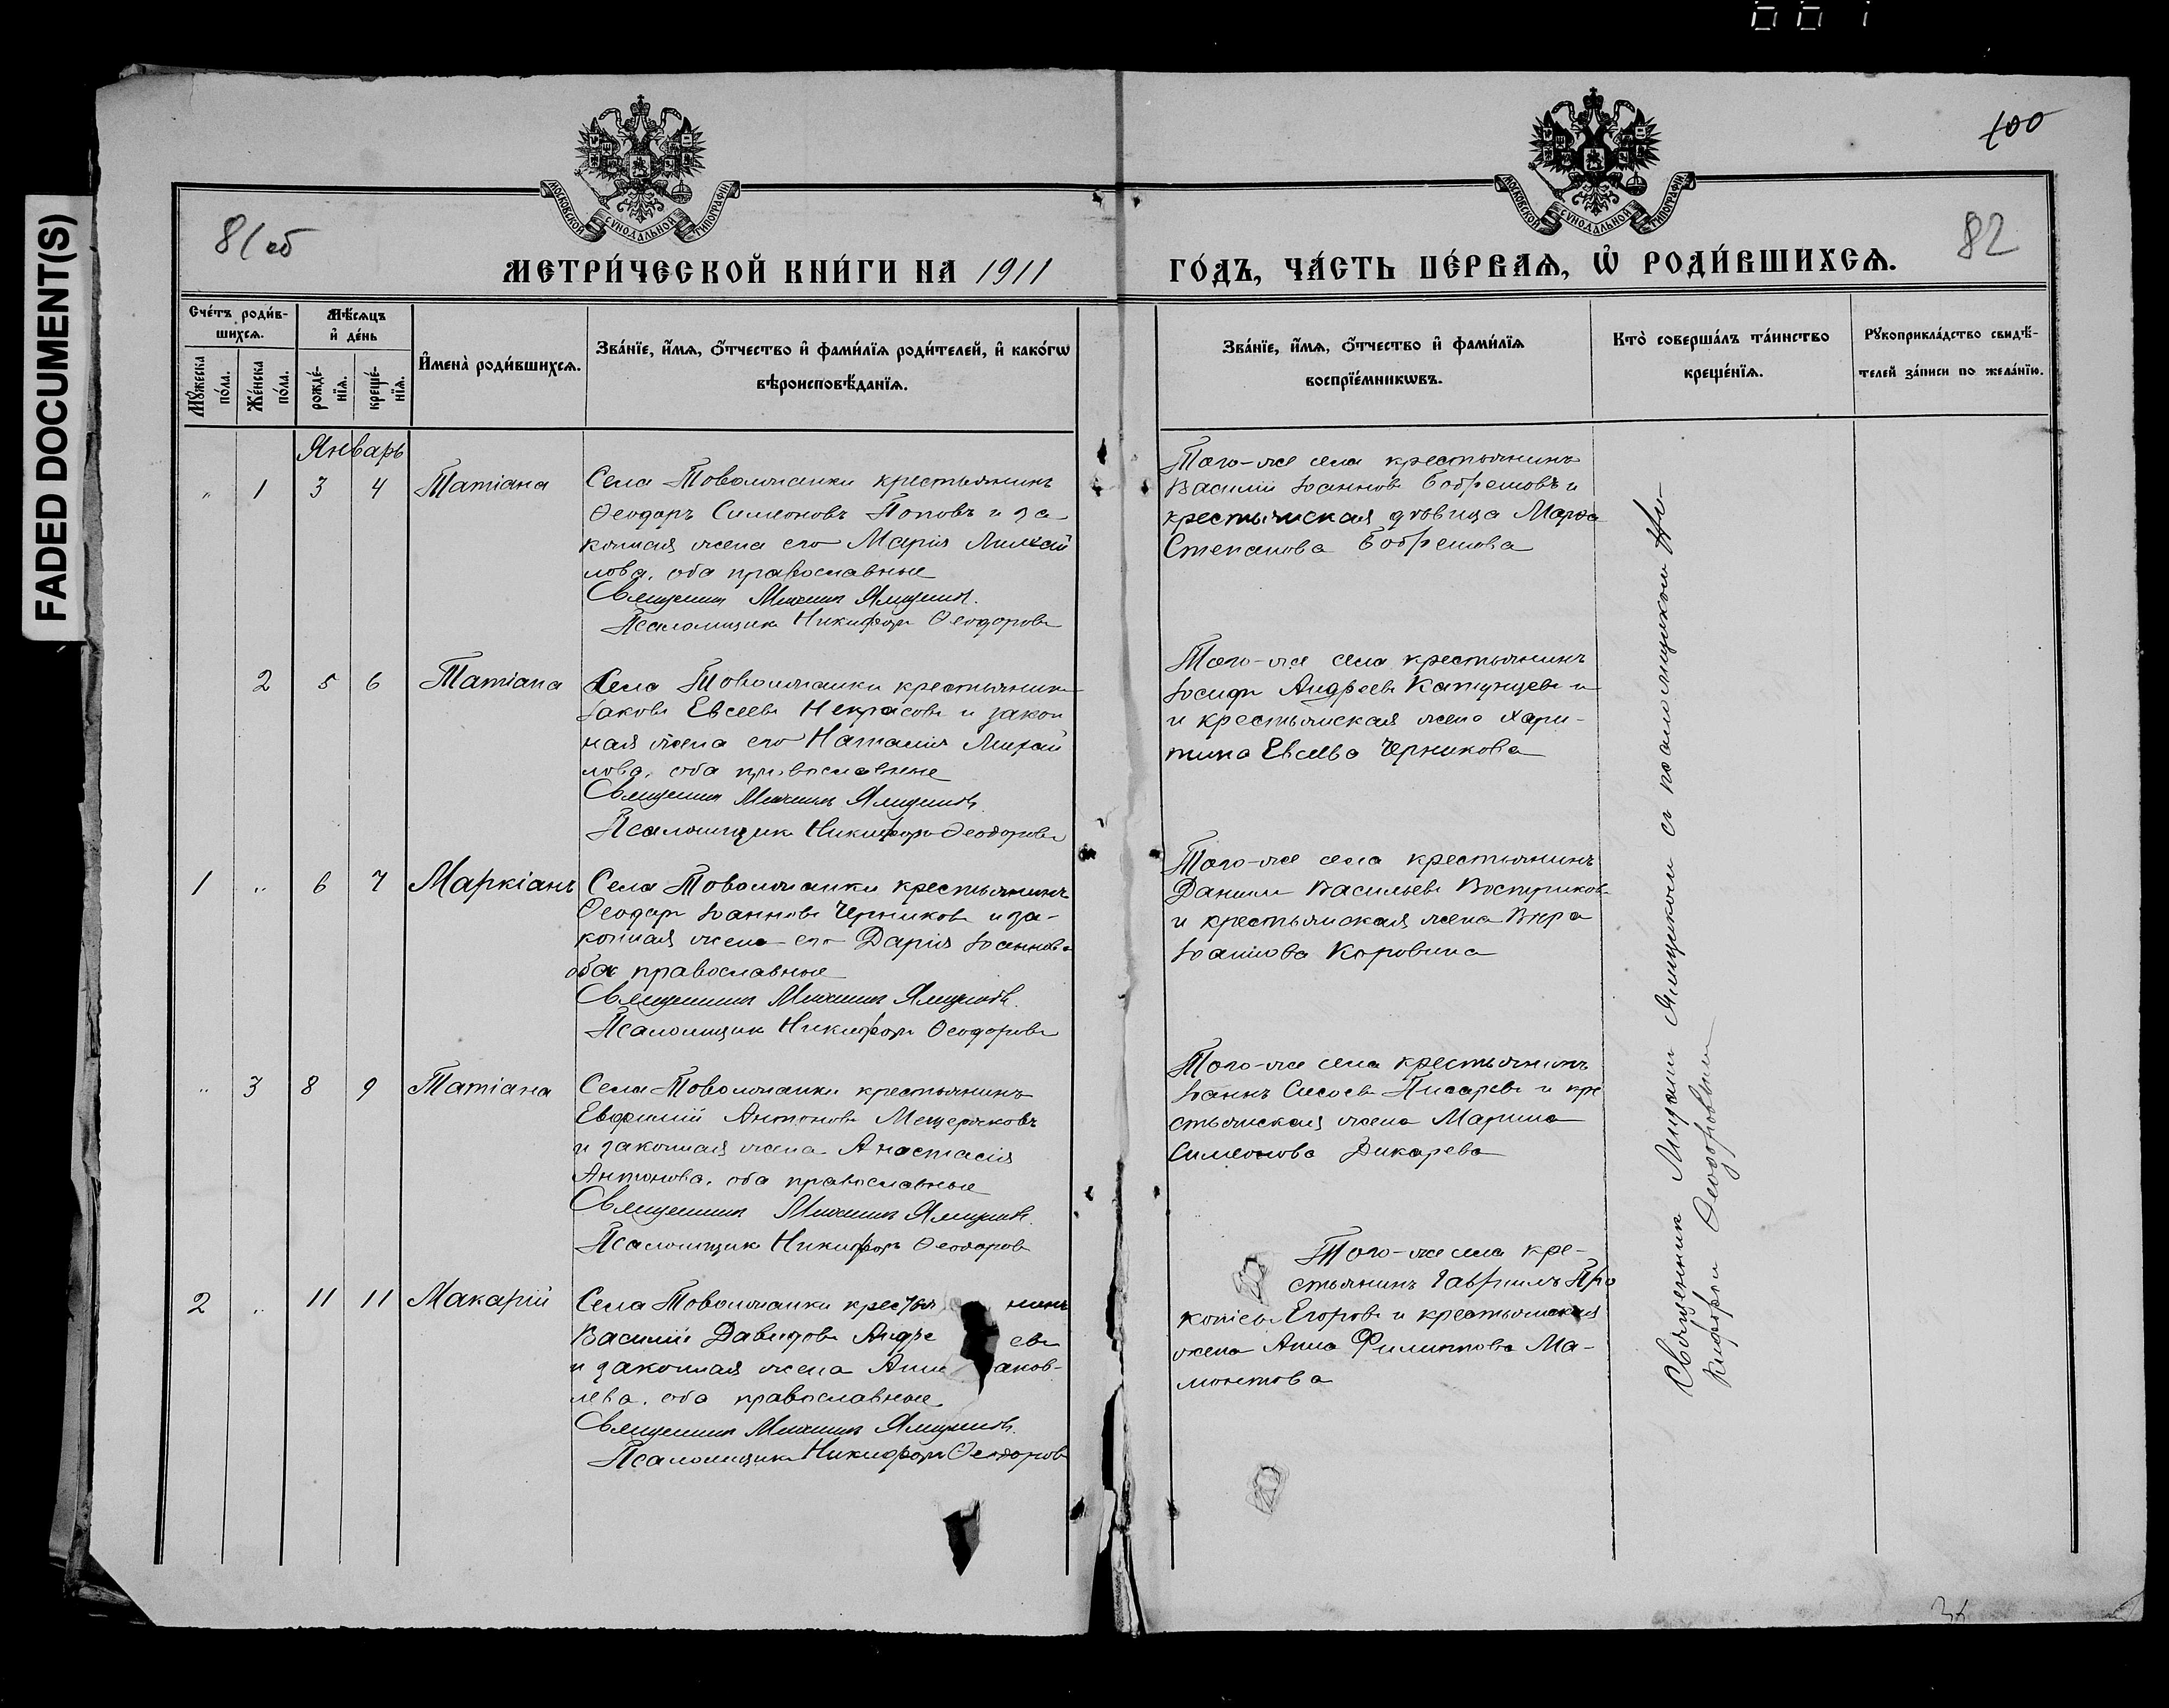 FADED DOCUMENT(S)
100
81 об
82
МОСКОВСКОЙ СѴНОДАЛЬНОЙ ТИПОГРАФІИ
МОСКОВСКОЙ СѴНОДАЛЬНОЙ ТИПОГРАФІИ
МЕТРИ́ЧЕСКОЙ КНИ́ГИ НА 1911
ГО́ДЪ, ЧА́СТЬ ПЕ́РВАѦ, Ѡ҆ РОДИ́ВШИХСѦ.
Сче́тъ роди́в-
шихсѧ.
Мꙋ́жеска по́ла.
Же́нска по́ла.
Мѣ́сѧцъ
и҆ де́нь
рожде́-
нїѧ.
креще́-
нїѧ.
И҆мена̀ роди́вшихсѧ.
Зва́нїе, и҆́мѧ, ѻ҆́тчество и҆ фами́лїѧ роди́телей, и҆ како́гѡ
вѣроисповѣ́данїѧ.
Зва́нїе, и҆́мѧ, ѻ҆́тчество и҆ фами́лїѧ
воспрїе́мникѡвъ.
Кто̀ соверша́лъ та́инство
креще́нїѧ.
Рꙋкоприкла́дство свидѣ́-
телей за́писи по жела́нїю.
Январь
" 1 3 4 Татіана
Села Товолжанки крестьянинъ
Ѳеодоръ Симеоновъ Поповъ и за-
конная жена его Марія Михай
лова, оба православные
Священникъ Михаилъ Ямщиковъ.
Псаломщикъ Никифоръ Ѳеодоровъ
Того-же села крестьянинъ
Василій Іоанновъ Бобрешовъ и
крестьянская дѣвица Марѳа
Степанова Бобрешова
2 5 6 Татіана
Села Товолжанки крестьянинъ
Іаковъ Евсеевъ Некрасовъ и закон
ная жена его Наталія Михай
лова, оба православные
Священникъ Михаилъ Ямщиковъ.
Псаломщикъ Никифоръ Ѳеодоровъ
Того-же села крестьянинъ
Іосифъ Андреевъ Катунцевъ и
и крестьянская жена Хари-
тина Евсеева Черникова
1 " 6 7 Маркіанъ
Села Товолжанки крестьянинъ
Ѳеодоръ Іоанновъ Черниковъ и за-
конная жена его Дарія Іоаннова
оба православные
Священникъ Михаилъ Ямщиковъ.
Псаломщикъ Никифоръ Ѳеодоровъ
Того-же села крестьянинъ
Даніилъ Васильевъ Востриковъ
и крестьянская жена Вѣра
Іоаннова Коровина
" 3 8 9 Татіана
Села Товолжанки крестьянинъ
Евфимій Антоновъ Мещеряковъ
и законная жена Анастасія
Антонова, оба православные
Священникъ Михаилъ Ямщиковъ.
Псаломщикъ Никифоръ Ѳеодоровъ
Того-же села крестьянинъ
Іоаннъ Сисоевъ Писаревъ и кре
стьянская жена Марина
Симеонова Дикарева
2 " 11 11 Макарій
Села Товолжанки крестья нинъ
Василій Давидовъ Андре евъ
и законная жена Анна аков-
лева, оба православные
Священникъ Михаилъ Ямщиковъ.
Псаломщикъ Никифоръ Ѳеодоровъ
Того-же села кре-
стьянинъ Гавріилъ Про
копіевъ Егоровъ и крестьянская
жена Анна Филиппова Ма-
монтова
Священник Ямщиковъ съ псаломщикомъ Ни-
кифоромъ Ѳеодоровымъ